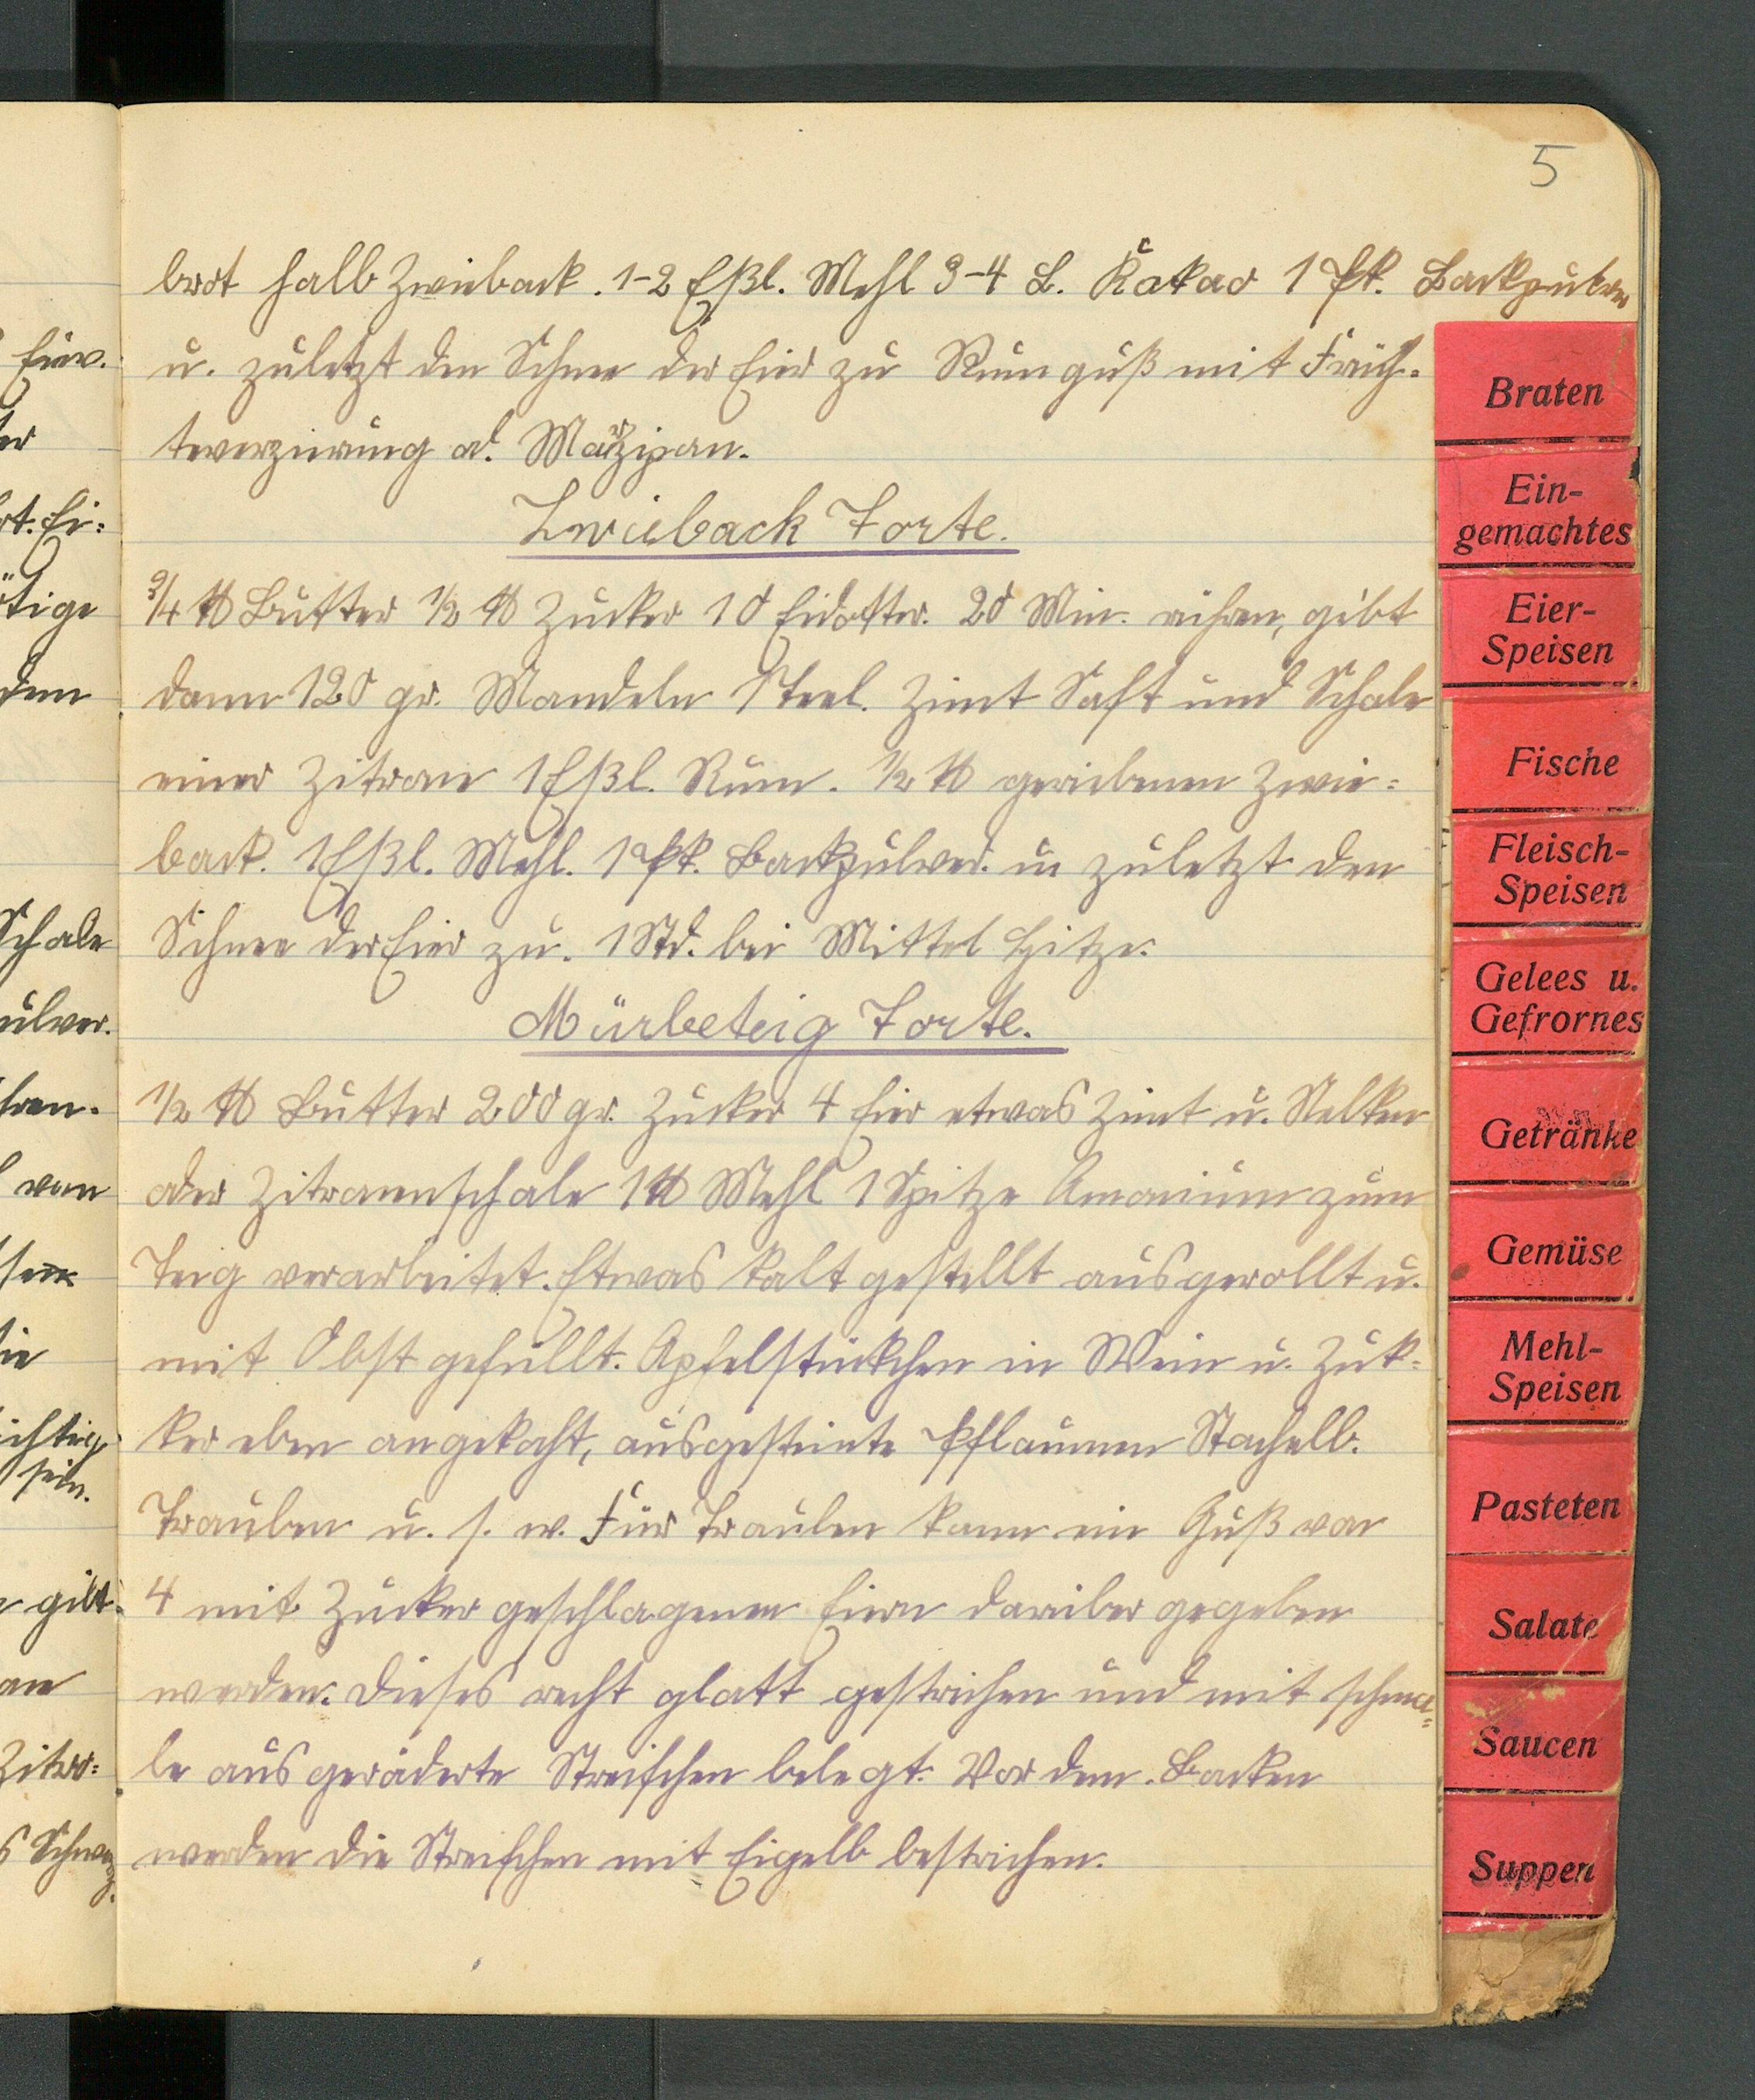 5
brot halb Zwieback. 1-2 Eßl. Mehl 3-4 L. Kakao 1 Pk. Backpulver
u. zuletzt den Schnee der Eier zu Rumguß mit Früch-
teverzierung od. Marzipan.
Zwieback Torte.
3/4 ℔ Butter 1/2 ℔ Zucker 10 Eidotter. 20 Min. rühren, gibt
dann 120 gr. Mandeln 1 Teel. Zimt Saft und Schale
einer Zitrone 1 Eßl. Rum. 1/2 ℔ geriebenen Zwie-
back. 1 Eßl. Mehl. 1 Pk. Backpulver. u zuletzt den
Schnee der Eier zu. 1 Std. bei Mittel Hitze.
Mürbeteig Torte.
1/2 ℔ Butter 200 gr. Zucker 4 Eier etwas Zimt u. Nelken
oder Zitronenschale 1 ℔ Mehl 1 Spitze Amonium zum
Teig verarbeitet. Etwas kalt gestellt ausgerollt u.
mit Obst gefüllt. Apfelstückchen in Wein u. Zuk-
ker eben angekocht, ausgesteinte Pflaumen Stachelb.
Trauben u. s. w. Für Trauben kann ein Guß von
4 mit Zucker geschlagenen Eiern darüber gegeben
werden. Dieses recht glatt gestrichen und mit schma-
le ausgeräderte Streifchen belegt. Vor dem Backen
werden die Streifchen mit Eigelb bestrichen.
Braten
Ein-
gemachtes
Eier-
Speisen
Fische
Fleisch-
Speisen
Gelees u.
Gefrornes
Getränke
Gemüse
Mehl-
Speisen
Pasteten
Salate
Saucen
Suppen